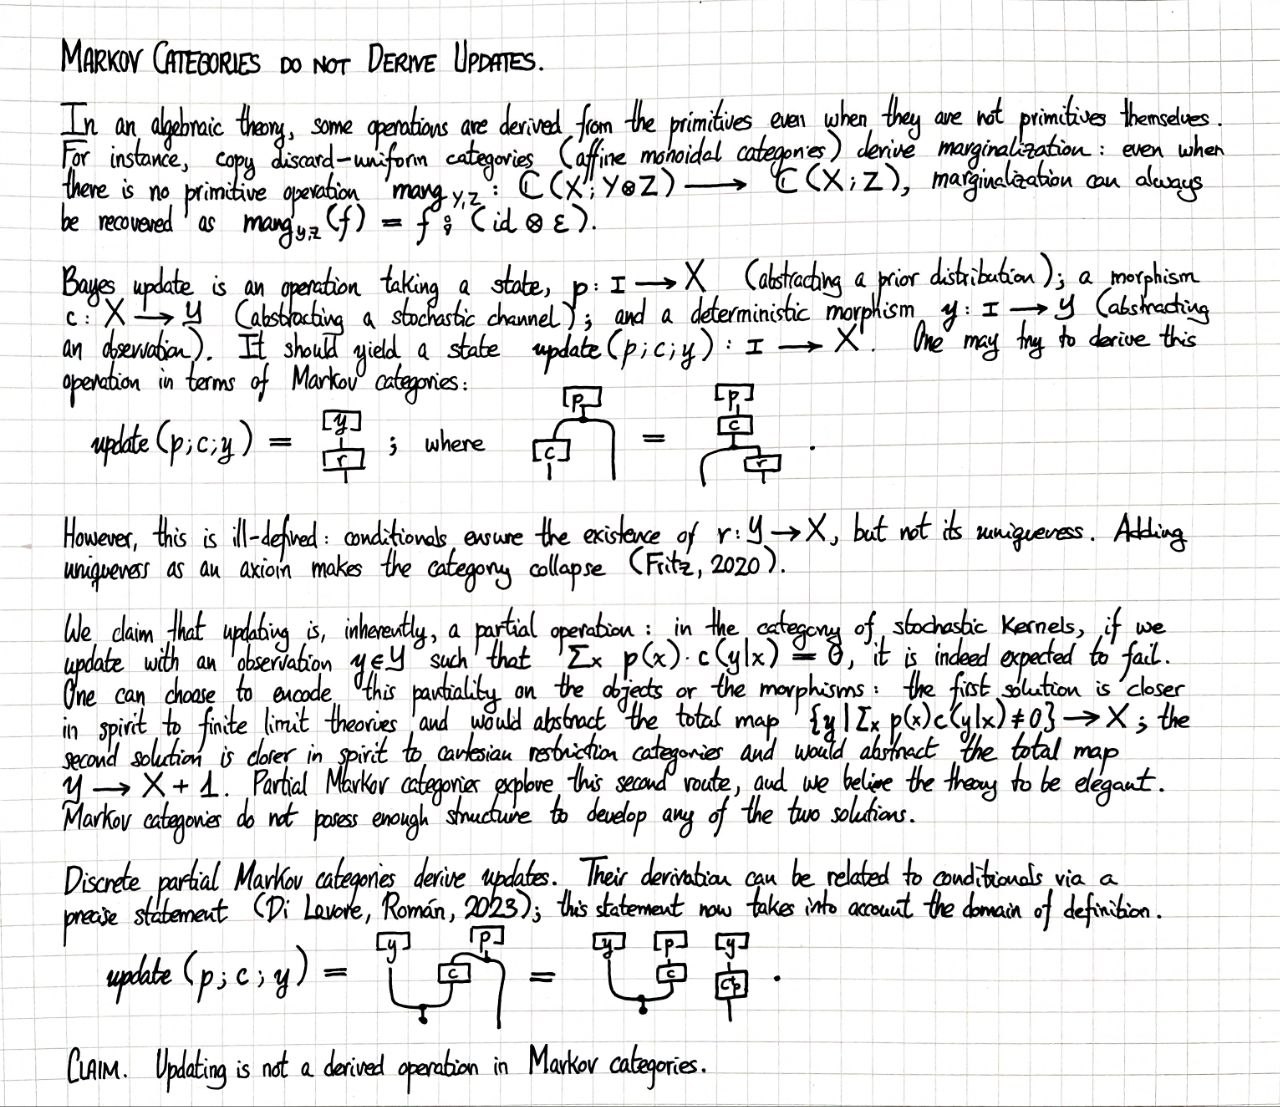 MARKOV CATEGORIES DO NOT DERIVE UPDATES.
In an algebraic theory, some operations are derived from the primitives even when they are not primitives themselves.
For instance, copy discard-uniform categories (affine monoidal categories) derive marginalization: even when
there is no primitive operation marg Y,Z : ℂ(X; Y⊗Z) → ℂ(X; Z), marginalization can always
be recovered as marg Y,Z (f) = f ⨟ (id ⊗ ε).
Bayes update is an operation taking a state, p: I → X (abstracting a prior distribution); a morphism
c: X → Y (abstracting a stochastic channel); and a deterministic morphism y: I → Y (abstracting
an observation). It should yield a state update(p;c;y): I → X. One may try to derive this
operation in terms of Markov categories:
update(p;c;y) = y r ; where p c = p c r .
However, this is ill-defined: conditionals ensure the existence of r: Y → X, but not its uniqueness. Adding
uniqueness as an axiom makes the category collapse (Fritz, 2020).
We claim that updating is, inherently, a partial operation: in the category of stochastic kernels, if we
update with an observation y∈Y such that Σx p(x)·c(y|x) = 0, it is indeed expected to fail.
One can choose to encode this partiality on the objects or the morphisms: the first solution is closer
in spirit to finite limit theories and would abstract the total map {y|Σx p(x)c(y|x)≠0} → X; the
second solution is closer in spirit to cartesian restriction categories and would abstract the total map
Y → X + 1. Partial Markov categories explore this second route, and we believe the theory to be elegant.
Markov categories do not posess enough structure to develop any of the two solutions.
Discrete partial Markov categories derive updates. Their derivation can be related to conditionals via a
precise statement (Di Lavore, Román, 2023); this statement now takes into account the domain of definition.
update(p;c;y) = y p c = y p c y c†p .
CLAIM. Updating is not a derived operation in Markov categories.